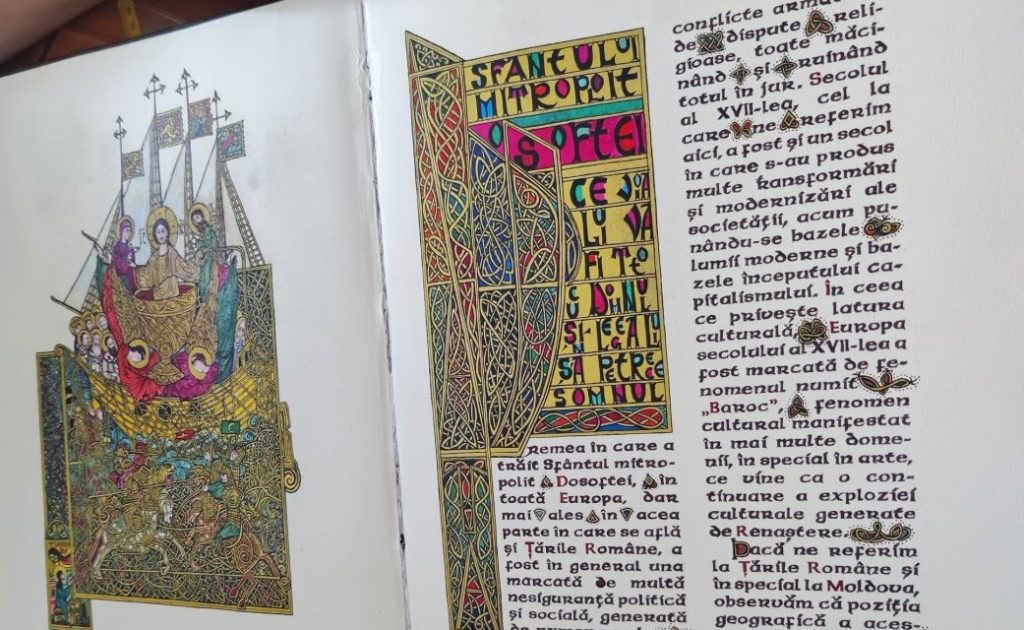 SFÂNTULUI
MITROPOLIT
DOSOFTEI
CE
LI VA
FI
SĂ PETRECE
SOMNUL
remea în care a
trăit Sfântul mitro-
polit Dosoftei, în
toată Europa, dar
mai ales în acea
parte în care se află
și Țările Române, a
fost în general una
marcată de multă
nesiguranță politică
și socială, generată
de
conflicte
de dispute reli-
gioase, toate măci-
nând și ruinând
totul în jur. Secolul
al XVII-lea, cel la
care ne referim
aici, a fost și un secol
în care s-au produs
multe transformări
și modernizări ale
societății, acum pu-
nându-se bazele
lumii moderne și ba-
zele începutului ca-
pitalismului. În ceea
ce privește latura
culturală, Europa
secolului al XVII-lea a
fost marcată de fe-
nomenul numit
„Baroc”, fenomen
cultural manifestat
în mai multe dome-
nii, în special în arte,
ce vine ca o con-
tinuare a exploziei
culturale generate
de Renaștere.
Dacă ne referim
la Țările Române și
în special la Moldova,
observăm că poziția
geografică a aces-